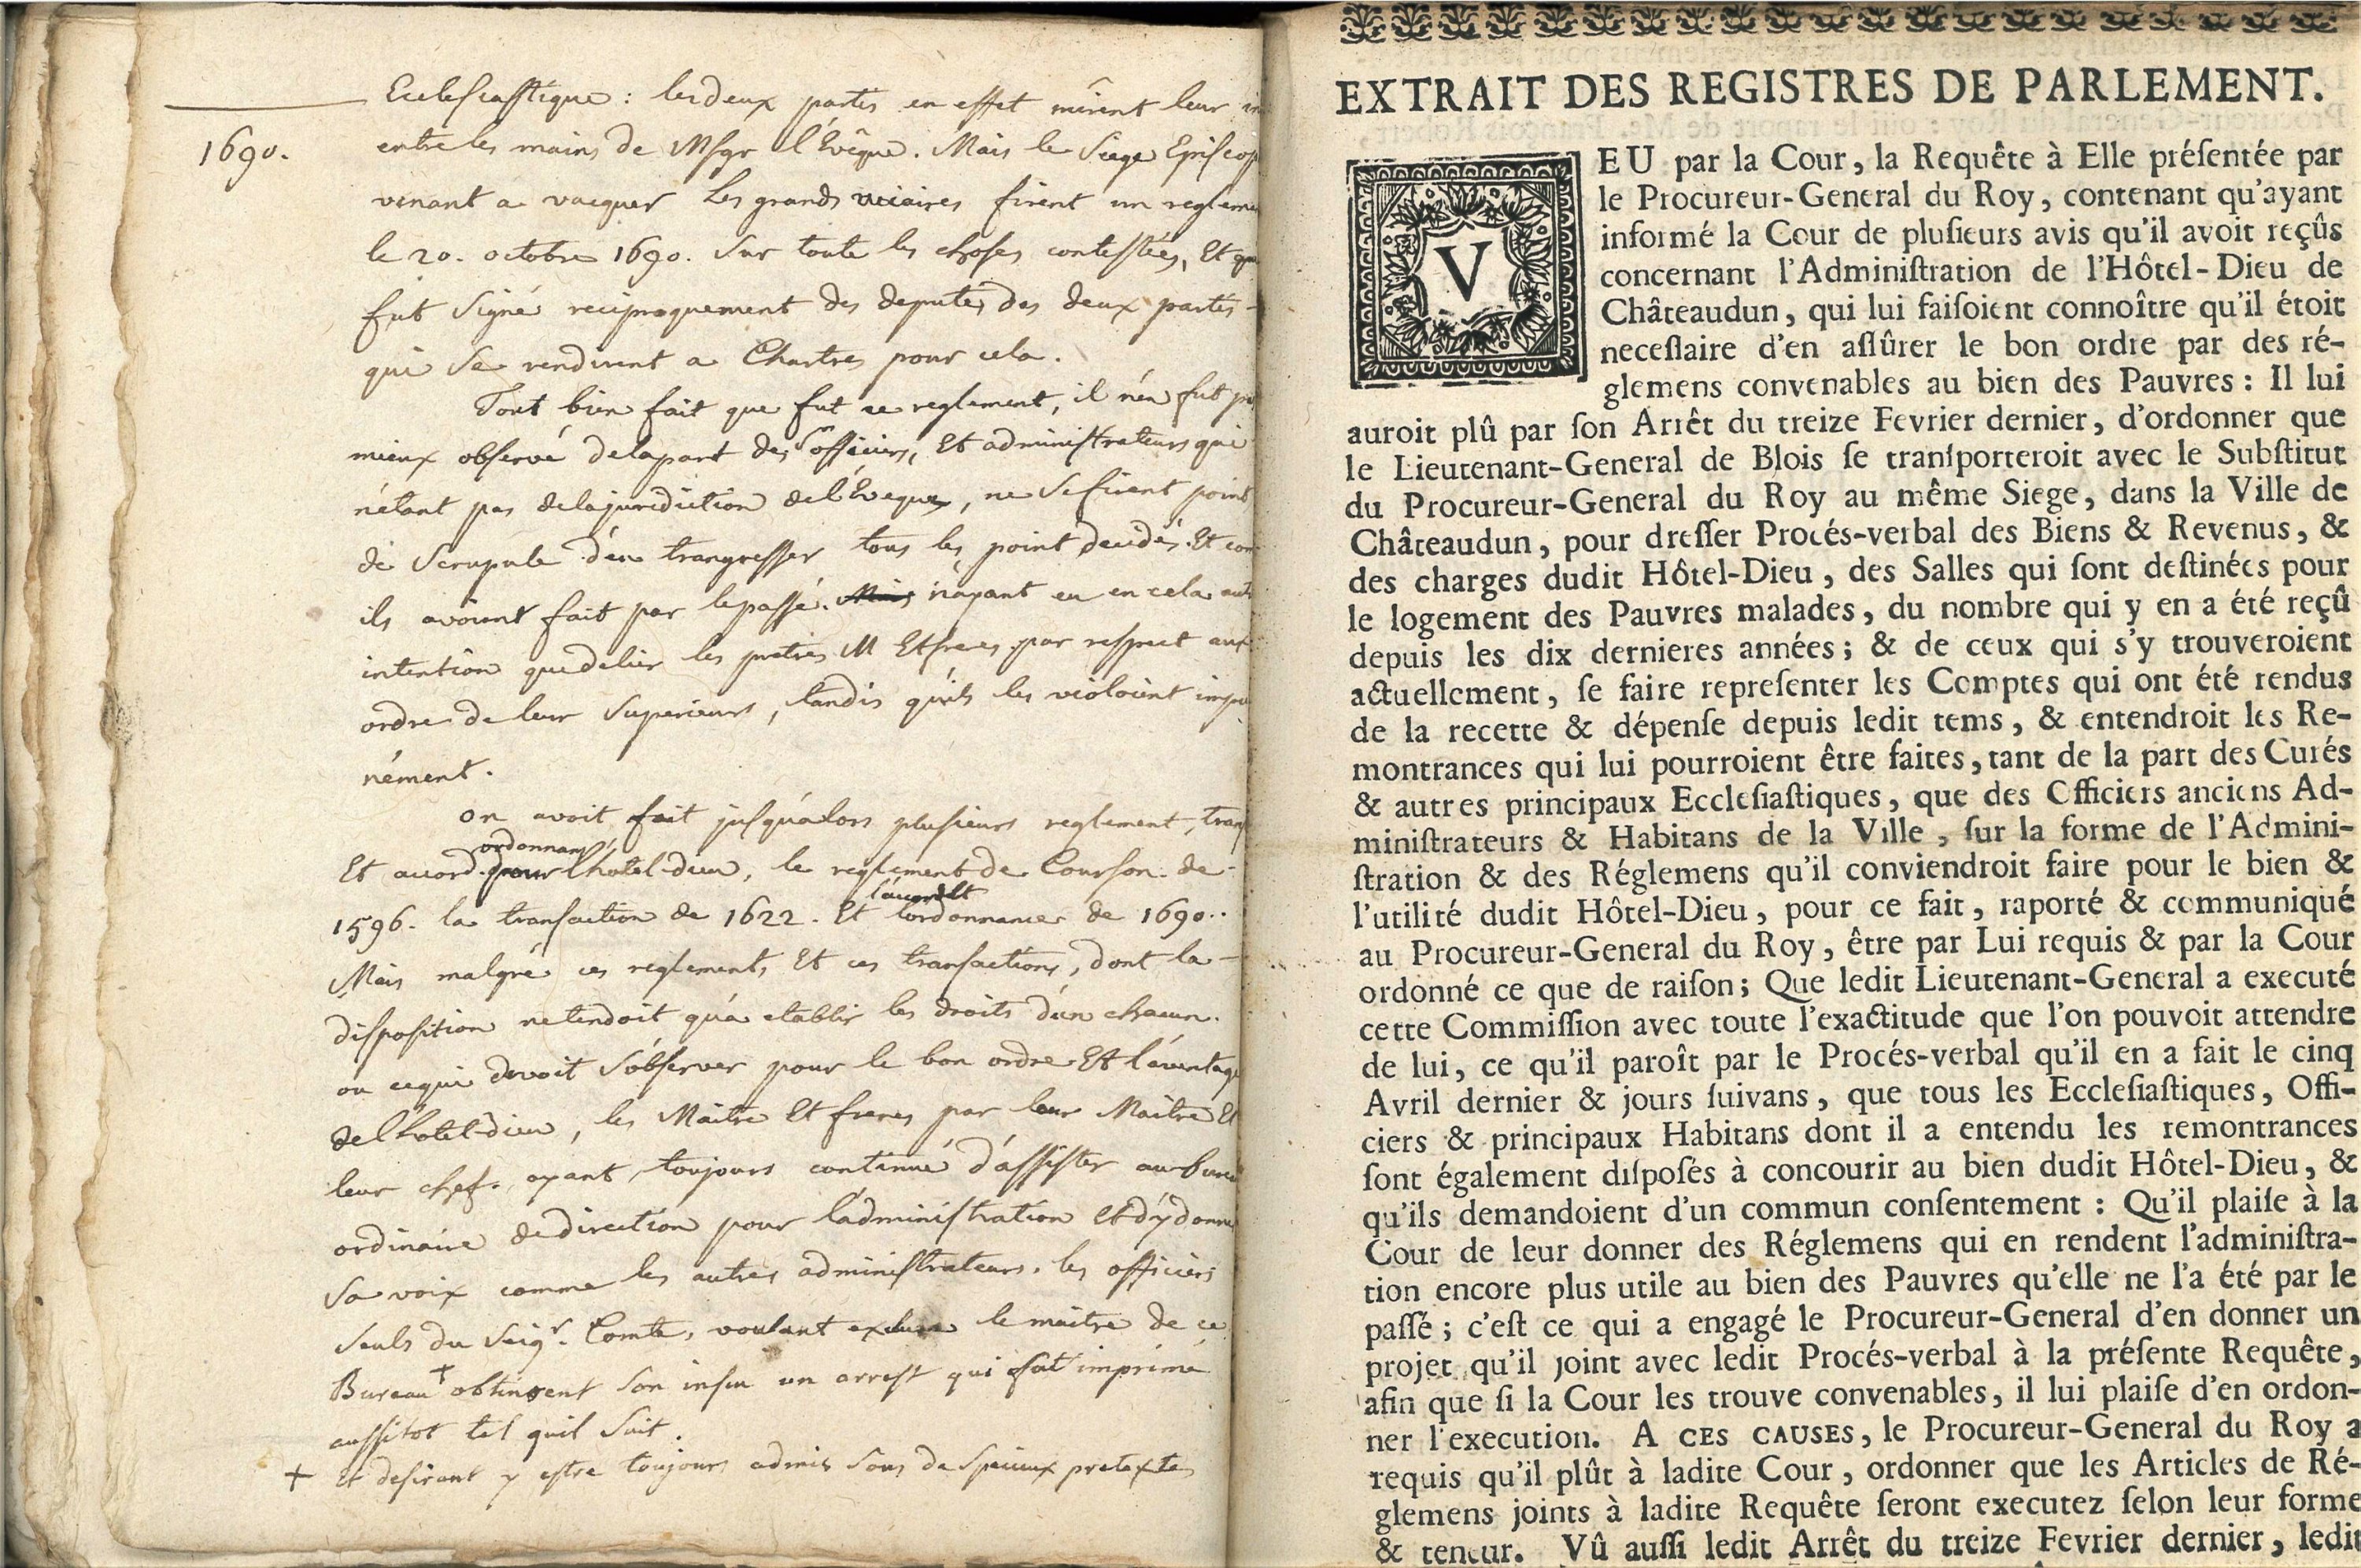 Ecclesiastique : les deux partis en effet mirent leur
1690.
entre les mains de Msgr l'Evêque. Mais le Siege Episcop
venant a vacquer Les grands viciaires firent un reglemen
le 20. octobre 1690. Sur toute les choses contestées, Et qu
fut Signé reciproquement des deputés des deux partis -
qui Se rendirent a Chartres pour cela.
Tout bien fait que fut ce reglement, il n'en fut p
mieux observé de la part des Srs officiers, Et administrateurs qui
n'étant pas de la juridiction de l'Eveque, ne Se firent point
de Scrupule d'en trangresser tous les point decidés. Et com
ils avoient fait par le passé. Mais n'ayant eu en cela aut
intention que de lier les pretres M Et freres par respect aux
ordre de leur Superieurs, tandis qu'ils les violoient impu
nément.
on avoit fait jusqu'alors plusieurs reglement, trans
ordonnan
Et accord. pour l'hotel-dieu, le reglement de Courson. de -
l'accord Et
1596. la transaction de 1622. Et l'ordonnance de 1690..
Mais malgré ces reglements Et ces transactions, dont la -
disposition ne tendoit qu'a etablir les droits d'un chacun.
ou ce qui devoit S'observer pour le bon ordre Et l'avantage
de l'hotel-dieu, les Maitre Et freres par leur Maitre Et
leur chef. ayant toujours continué d'assister au bure
ordinaire de direction pour l'administration et d'y donne
Sa voix comme les autres administrateurs. les officiers
Seuls du Seigr. Comte, voulant exclure le maitre de ce
Bureau + obtinrent Son insu un arrest qui fut imprimé
aussitot tel quil Suit.
+ Et desirant y estre toujours admis Sous de Specieux pretextes
EXTRAIT DES REGISTRES DE PARLEMENT.
VEU par la Cour, la Requête à Elle préſentée par
le Procureur-General du Roy, contenant qu'ayant
informé la Cour de pluſieurs avis qu'il avoit reçûs
concernant l'Adminiſtration de l'Hôtel-Dieu de
Châteaudun, qui lui faiſoient connoître qu'il étoit
neceſſaire d'en aſſûrer le bon ordre par des ré-
glemens convenables au bien des Pauvres : Il lui
auroit plû par ſon Arrêt du treize Fevrier dernier, d'ordonner que
le Lieutenant-General de Blois ſe tranſporteroit avec le Subſtitut
du Procureur-General du Roy au même Siege, dans la Ville de
Châteaudun, pour dreſſer Procés-verbal des Biens & Revenus, &
des charges dudit Hôtel-Dieu, des Salles qui ſont deſtinées pour
le logement des Pauvres malades, du nombre qui y en a été reçû
depuis les dix dernieres années ; & de ceux qui s'y trouveroient
actuellement, ſe faire repreſenter les Comptes qui ont été rendus
de la recette & dépenſe depuis ledit tems, & entendroit les Re-
montrances qui lui pourroient être faites, tant de la part des Curés
& autres principaux Eccleſiaſtiques, que des Officiers anciens Ad-
miniſtrateurs & Habitans de la Ville, ſur la forme de l'Admini-
ſtration & des Réglemens qu'il conviendroit faire pour le bien &
l'utilité dudit Hôtel-Dieu, pour ce fait, raporté & communiqué
au Procureur-General du Roy, être par Lui requis & par la Cour
ordonné ce que de raiſon ; Que ledit Lieutenant-General a executé
cette Commiſſion avec toute l'exactitude que l'on pouvoit attendre
de lui, ce qu'il paroît par le Procés-verbal qu'il en a fait le cinq
Avril dernier & jours ſuivans, que tous les Eccleſiaſtiques, Offi-
ciers & principaux Habitans dont il a entendu les remontrances
ſont également diſpoſés à concourir au bien dudit Hôtel-Dieu, &
qu'ils demandoient d'un commun conſentement : Qu'il plaiſe à la
Cour de leur donner des Réglemens qui en rendent l'adminiſtra-
tion encore plus utile au bien des Pauvres qu'elle ne l'a été par le
paſſé ; c'eſt ce qui a engagé le Procureur-General d'en donner un
projet qu'il joint avec ledit Procés-verbal à la préſente Requête,
afin que ſi la Cour les trouve convenables, il lui plaiſe d'en ordon-
ner l'execution. A CES CAUSES, le Procureur-General du Roy a
requis qu'il plût à ladite Cour, ordonner que les Articles de Ré-
glemens joints à ladite Requête ſeront executez ſelon leur forme
& teneur. Vû auſſi ledit Arrêt du treize Fevrier dernier, ledit